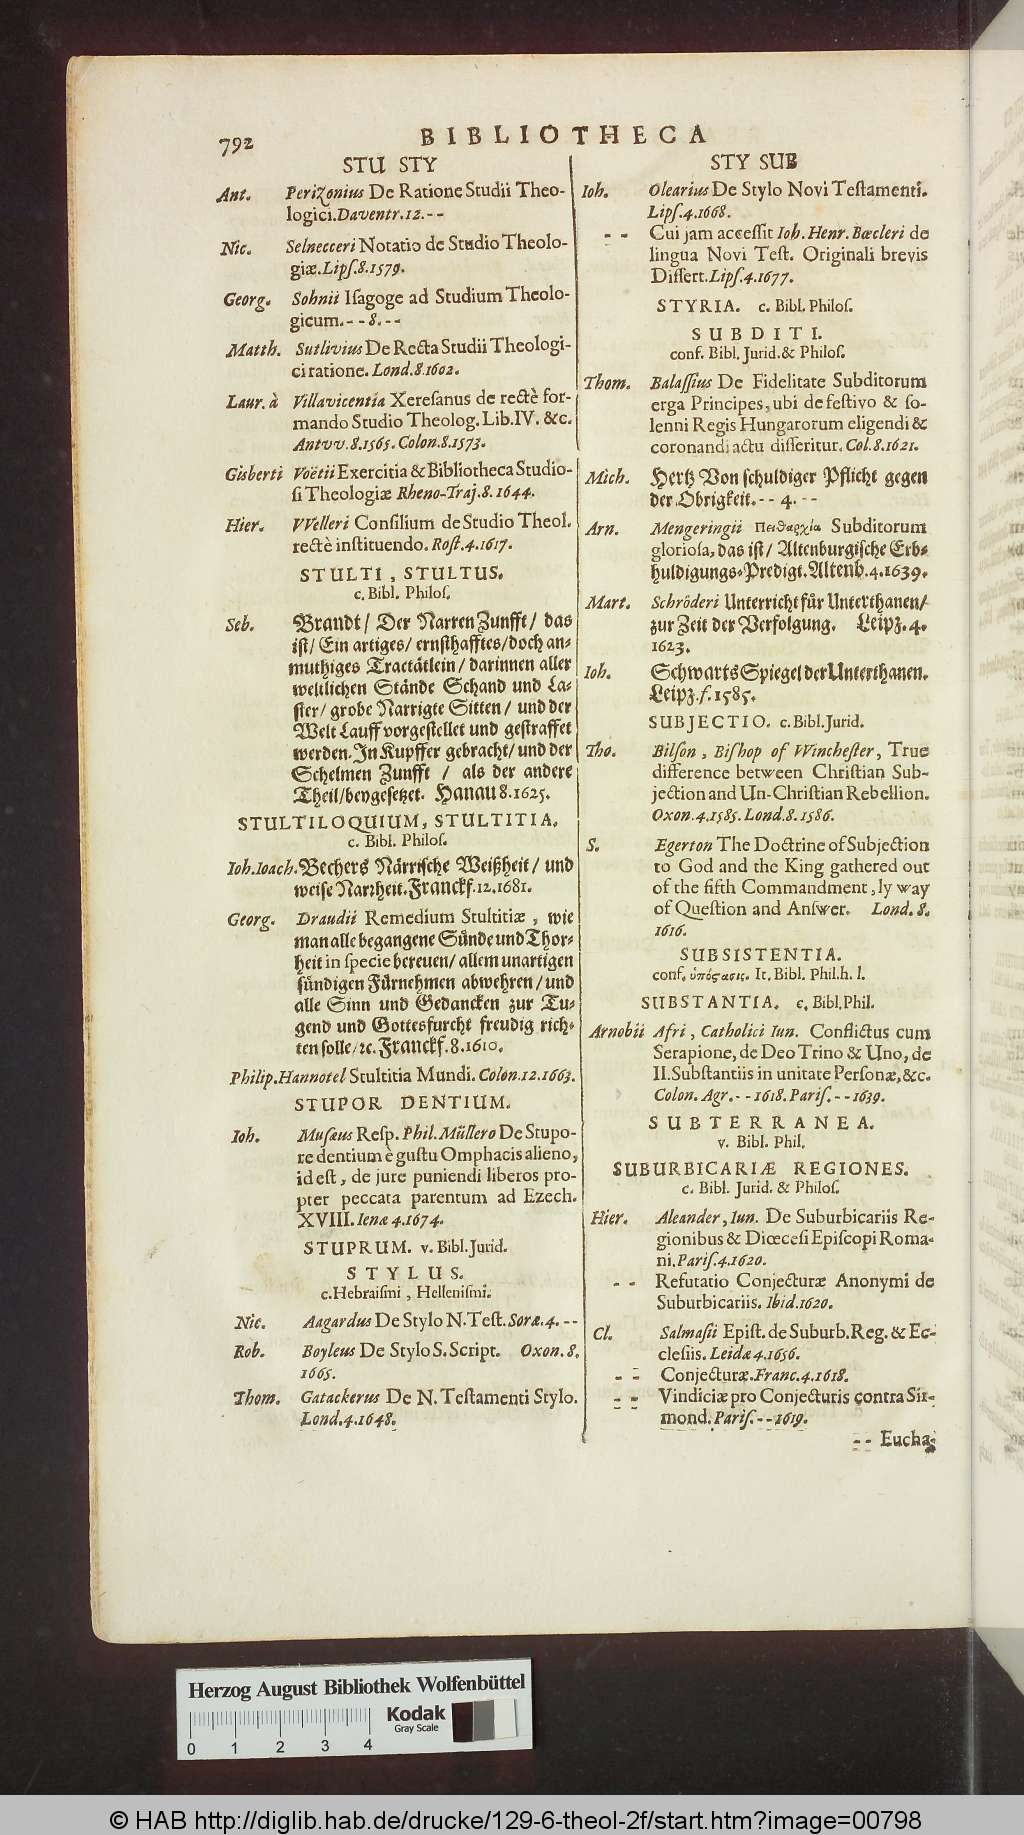 792
BIBLIOTHECA
STU STY
Ant. Perizonius De Ratione Studii Theo-
logici. Daventr. 12. - -
Nic. Selnecceri Notatio de Studio Theolo-
giæ. Lipſ. 8. 1579.
Georg. Sohnii Iſagoge ad Studium Theolo-
gicum. - - 8. - -
Matth. Sutlivius De Recta Studii Theologi-
ci ratione. Lond. 8. 1602.
Laur. à Villavicentia Xereſanus de rectè for-
mando Studio Theolog. Lib. IV. &c.
Antvv. 8. 1565. Colon. 8. 1573.
Gisberti Voëtii Exercitia & Bibliotheca Studio-
ſi Theologiæ Rheno-Traj. 8. 1644.
Hier. VVelleri Conſilium de Studio Theol.
rectè inſtituendo. Roſt. 4. 1617.
STULTI, STULTUS.
c. Bibl. Philoſ.
Seb. Brandt / Der Narren Zunfft / das
iſt / Ein artiges / ernſthafftes / doch an-
muthiges Tractätlein / darinnen aller
weltlichen Stände Schand und La-
ſter / grobe Narrigte Sitten / und der
Welt Lauff vorgeſtellet und geſtraffet
werden. In Kupffer gebracht / und der
Schelmen Zunfft / als der andere
Theil / beygeſetzet. Hanau 8. 1625.
STULTILOQUIUM, STULTITIA.
c. Bibl. Philoſ.
Ioh. Ioach. Bechers Närriſche Weißheit / und
weiſe Narrheit. Franckf. 12. 1681.
Georg. Draudii Remedium Stultitiæ, wie
man alle begangene Sünde und Thor-
heit in ſpecie bereuen / allem unartigen
ſündigen Fürnehmen abwehren / und
alle Sinn und Gedancken zur Tu-
gend und Gottesfurcht freudig rich-
ten ſolle / ꝛc. Franckf. 8. 1610.
Philip. Hannotel Stultitia Mundi. Colon. 12. 1663.
STUPOR DENTIUM.
Ioh. Muſæus Reſp. Phil. Müllero De Stupo-
re dentium è guſtu Omphacis alieno,
id eſt, de jure puniendi liberos pro-
pter peccata parentum ad Ezech.
XVIII. Ienæ 4. 1674.
STUPRUM. v. Bibl. Jurid.
STYLUS.
c. Hebraiſmi, Helleniſmi.
Nic. Aagardus De Stylo N. Teſt. Soræ. 4. - -
Rob. Boyleus De Stylo S. Script. Oxon. 8.
1665.
Thom. Gatackerus De N. Teſtamenti Stylo.
Lond. 4. 1648.
STY SUB
Ioh. Olearius De Stylo Novi Teſtamenti.
Lipſ. 4. 1668.
- - Cui jam acceſſit Ioh. Henr. Bœcleri de
lingua Novi Teſt. Originali brevis
Diſſert. Lipſ. 4. 1677.
STYRIA. c. Bibl. Philoſ.
SUBDITI.
conf. Bibl. Jurid. & Philoſ.
Thom. Balaſſius De Fidelitate Subditorum
erga Principes, ubi de feſtivo & ſo-
lenni Regis Hungarorum eligendi &
coronandi actu diſſeritur. Col. 8. 1621.
Mich. Hertz Von ſchuldiger Pflicht gegen
der Obrigkeit. - - 4. - -
Arn. Mengeringii Πειθαρχία Subditorum
glorioſa, das iſt / Altenburgiſche Erb-
huldigungs-Predigt. Altenb. 4. 1639.
Mart. Schröderi Unterricht für Unterthanen /
zur Zeit der Verfolgung. Leipz. 4.
1623.
Ioh. Schwarts Spiegel der Unterthanen.
Leipz. f. 1585.
SUBJECTIO. c. Bibl. Jurid.
Tho. Bilſon, Biſhop of VVincheſter, True
difference between Chriſtian Sub-
jection and Un-Chriſtian Rebellion.
Oxon. 4. 1585. Lond. 8. 1586.
S. Egerton The Doctrine of Subjection
to God and the King gathered out
of the fifth Commandment, ly way
of Queſtion and Anſwer. Lond. 8.
1616.
SUBSISTENTIA.
conf. ὑπόϛασις. It. Bibl. Phil. h. l.
SUBSTANTIA. c. Bibl. Phil.
Arnobii Afri, Catholici Iun. Conflictus cum
Serapione, de Deo Trino & Uno, de
II. Subſtantiis in unitate Perſonæ, &c.
Colon. Agr. - - 1618. Pariſ. - - 1639.
SUBTERRANEA.
v. Bibl. Phil.
SUBURBICARIÆ REGIONES.
c. Bibl. Jurid. & Philoſ.
Hier. Aleander, Iun. De Suburbicariis Re-
gionibus & Diœceſi Epiſcopi Roma-
ni. Pariſ. 4. 1620.
- - Refutatio Conjecturæ Anonymi de
Suburbicariis. Ibid. 1620.
Cl. Salmaſii Epiſt. de Suburb. Reg. & Ec-
cleſiis. Leidæ 4. 1656.
- - Conjecturæ. Franc. 4. 1618.
- - Vindiciæ pro Conjecturis contra Sir-
mond. Pariſ. - - 1619.
- - Eucha-
Herzog August Bibliothek Wolfenbüttel
Kodak
Gray Scale
0 1 2 3 4
© HAB http://diglib.hab.de/drucke/129-6-theol-2f/start.htm?image=00798